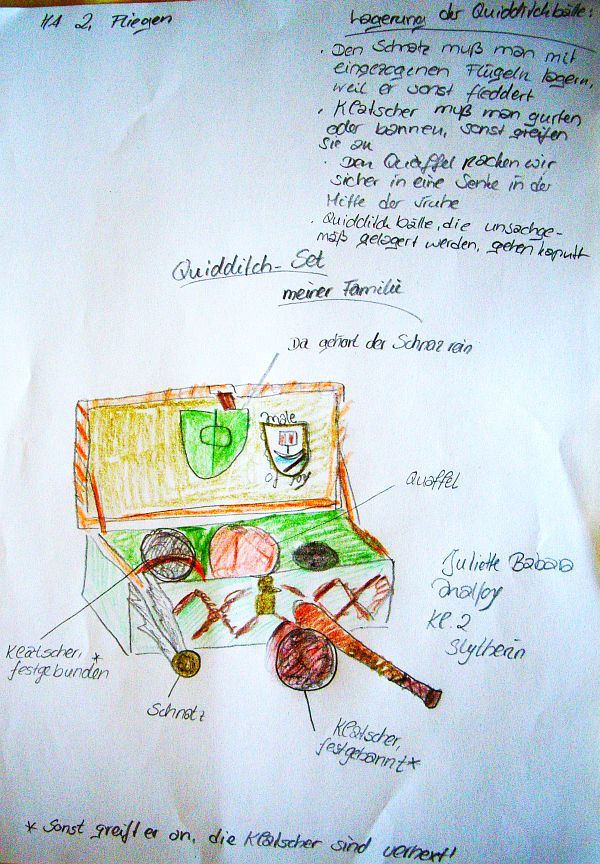 HA 2, Fliegen
Lagerung der Quidditchbälle:
· Den Schnatz muß man mit
eingezogenen Flügeln lagern,
weil er sonst fleddert
· Klatscher muß man gurten
oder bannen, sonst greifen
sie an
· Den Quaffel packen wir
sicher in eine Senke in der
Mitte der Truhe
· Quidditch bälle, die unsachge-
mäß gelagert werden, gehen kaputt
Quidditch-Set
meiner Familie
Da gehört der Schnaz rein
Male
of foy
Quaffel
Juliette Babara
Malfoy
Kl. 2
Slytherin
Klatscher,
festgebunden *
Schnatz
Klatscher,
festgebannt *
* Sonst greift er an, die Klatscher sind verhext!